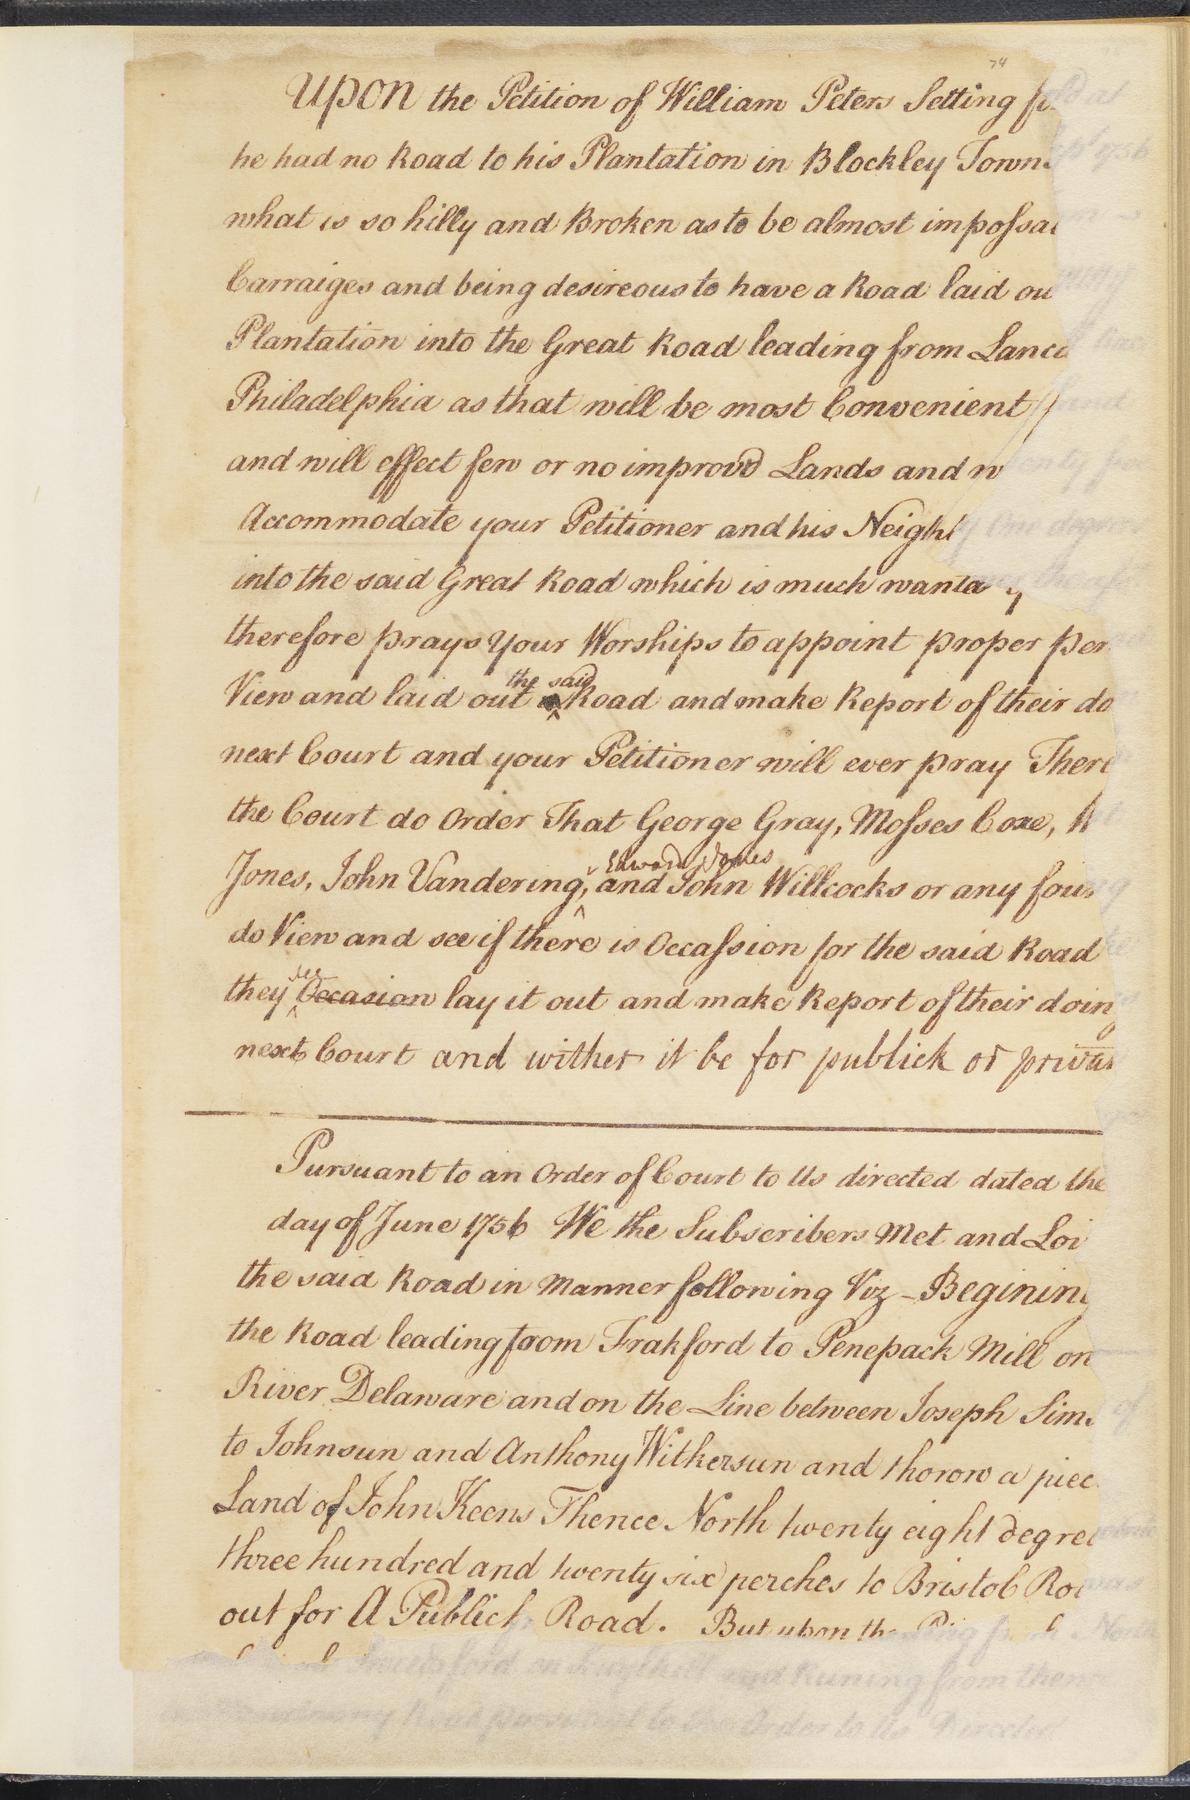 74
Upon the Petition of William Peters Setting fo
he had no Road to his Plantation in Blockley Towns
what is so hilly and Broken as to be almost impossa
Carraiges and being desireous to have a Road laid ou
Plantation into the Great Road leading from Lanca
Philadelphia as that will be most Convenient
and will effect few or no improvd Lands and w
Accommodate your Petitioner and his Neighb
into the said Great Road which is much wanta y
therefore prays your Worships to appoint proper per
the said
View and laid out Road and make Report of their do
next Court and your Petitioner will ever pray There
the Court do Order That George Gray, Mosses Coxe,
Edward Jones
Jones, John Vandering, and John Willcocks or any four
do View and see if there is Occassion for the said Road
see
they Occasion lay it out and make Report of their doing
next Court and wither it be for publick or privat
Pursuant to an Order of Court to Us directed dated the
day of June 1756 We the Subscribers Met and Loi
the said Road in Manner following Viz - Begining
the Road leading from Frakford to Penepack Mill on
River Delaware and on the Line between Joseph Sim
to Johnsun and Anthony Witkersun and thorow a piec
Land of John Keens Thence North twenty eight degree
three hundred and twenty six perches to Bristol Roa
out for A Publick Road. But upon the